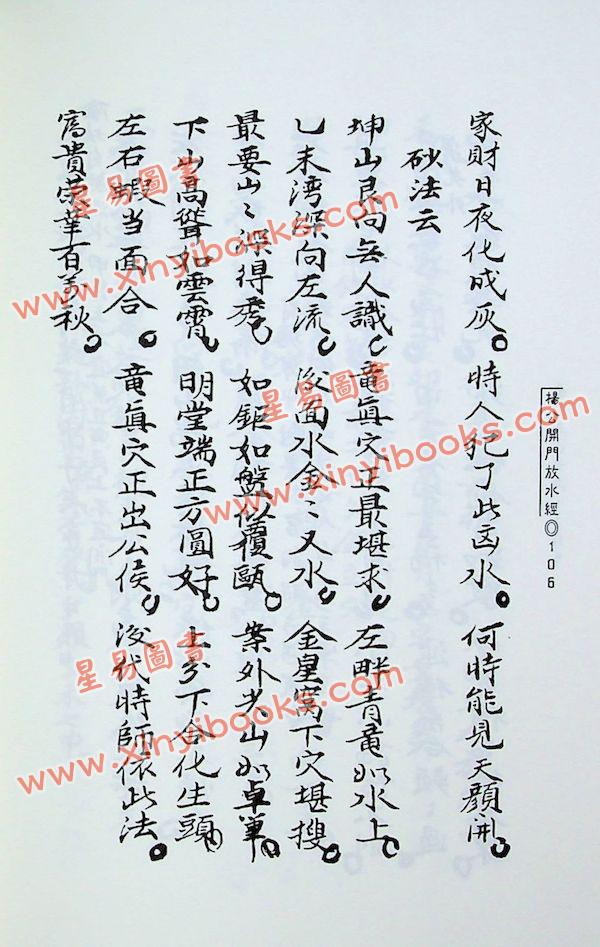 楊公開門放水經◎106
家財日夜化成灰。時人犯了此凶水。何時能見天顏開。
砂法云
坤山艮向無人識。竜眞穴正最堪求。左畔青竜如水上。
乙未湾深向左流。後面水金〻又水。金皇窩下穴堪搜。
最要山〻深得秀。如鉅如盤似甌。案外尖山如卓筆。
下山高聳如雲霄。明堂端正方圓好。上分下合化生頭。
左右蝦当面合。竜眞穴正出公侯。後代時師依此法。
富貴荣華百萬秋。
星易圖書
www.xinyibooks.com
星易圖書
www.xinyibooks.com
星易圖書
www.xinyibooks.com